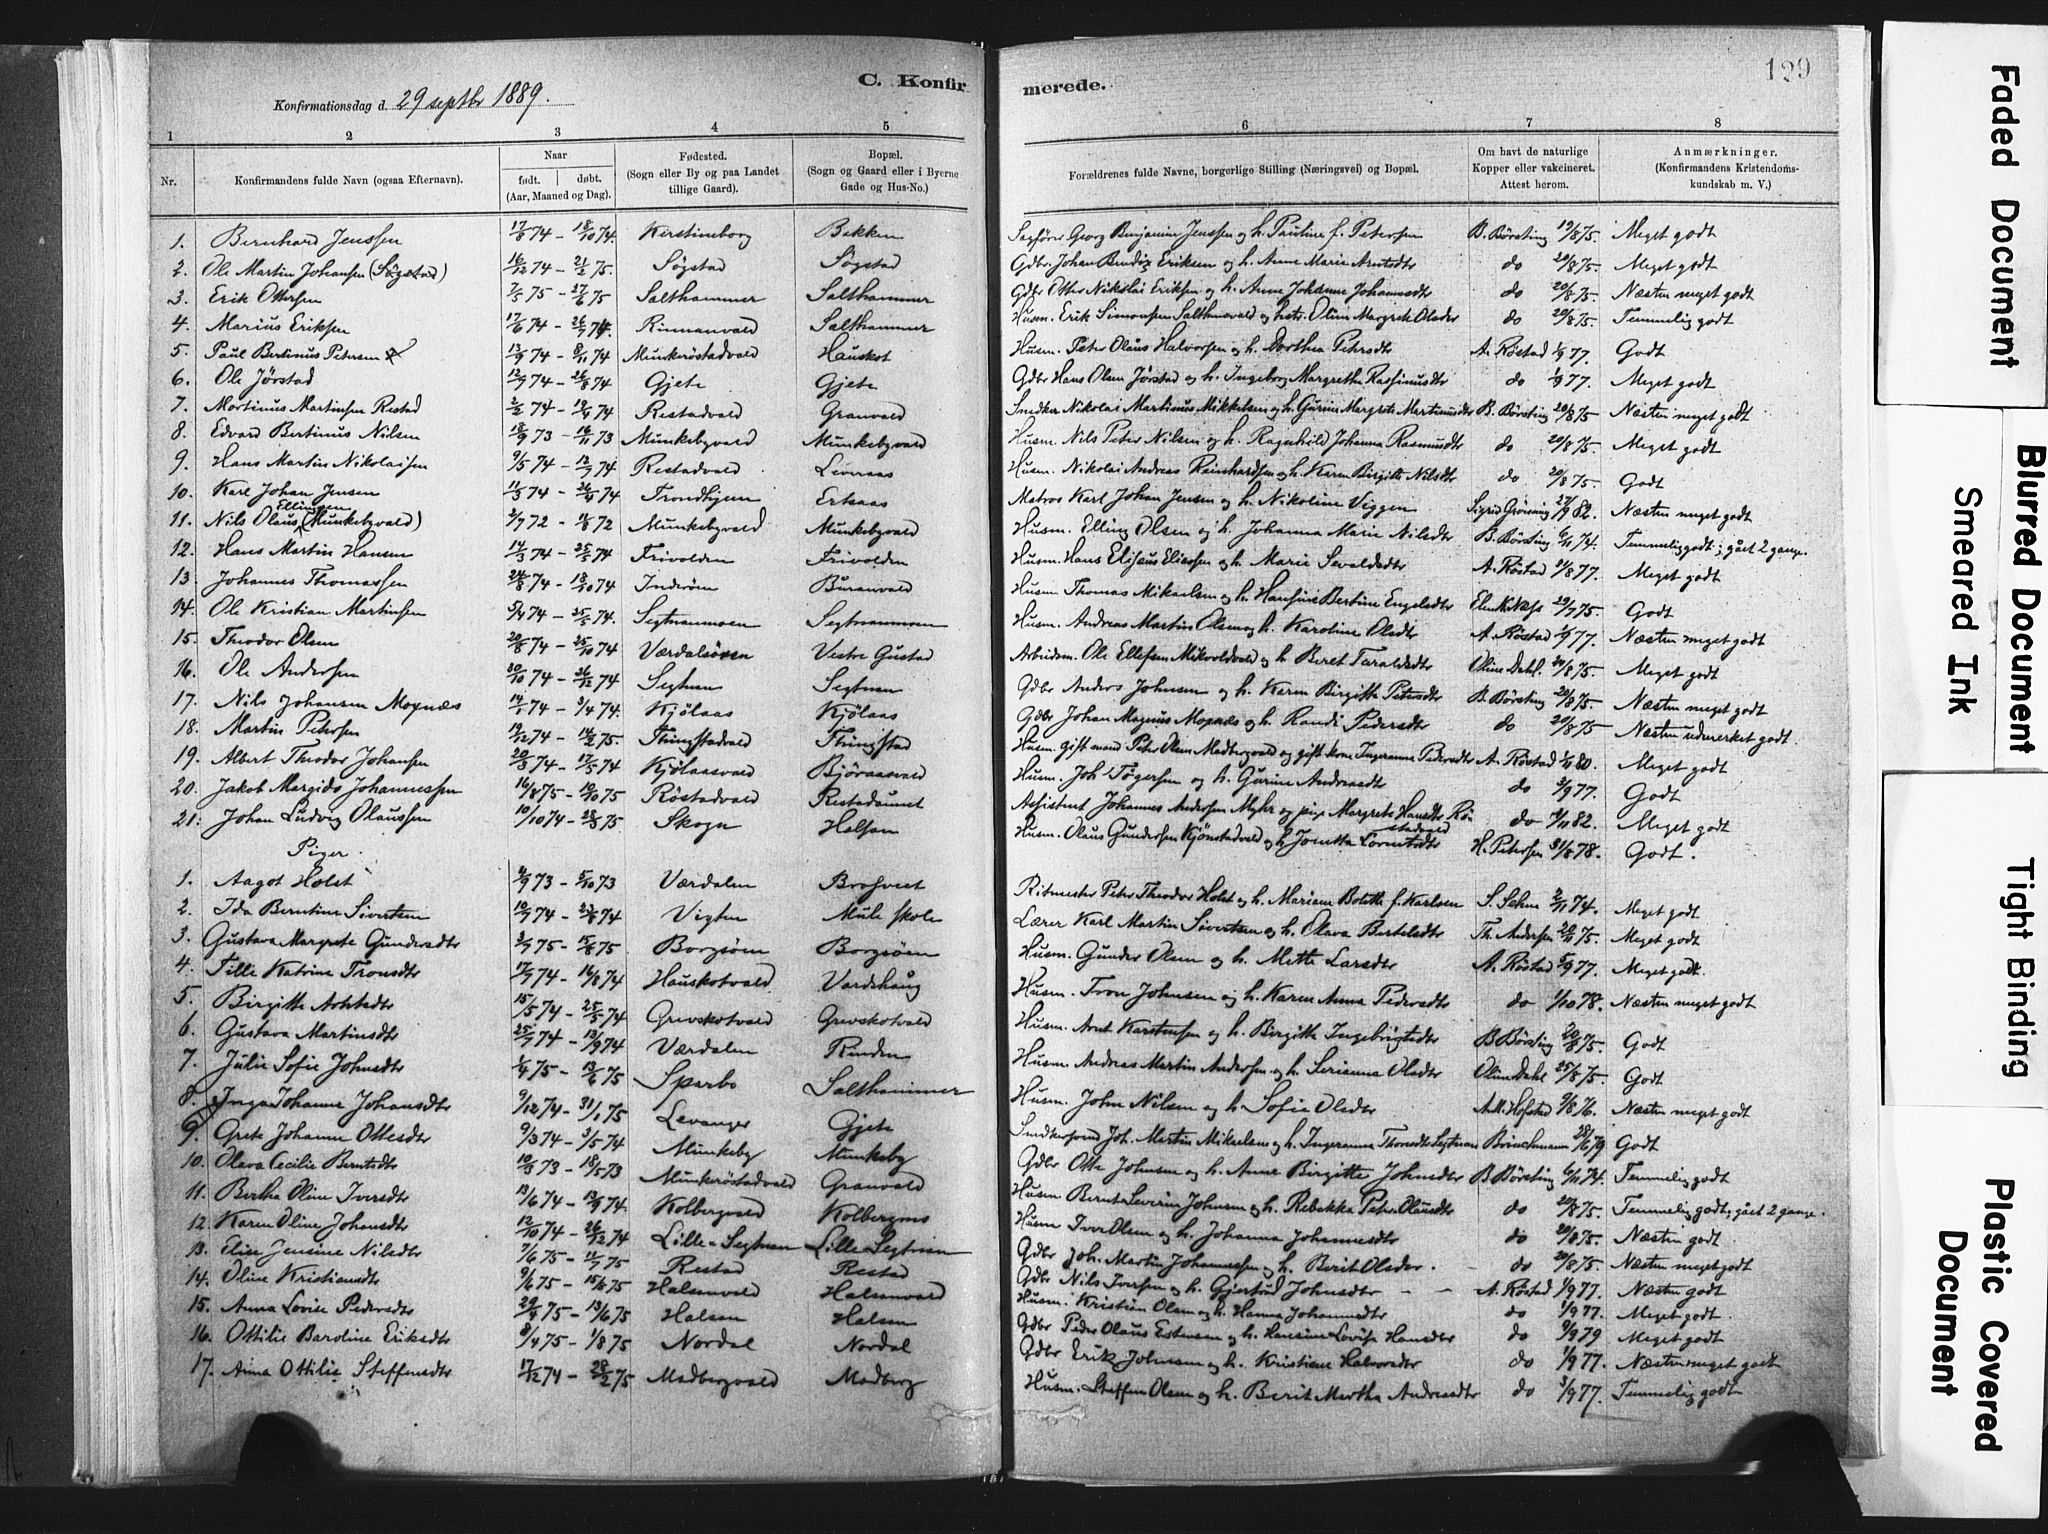 C. Konfir
merede.
129
Konfirmationsdag d. 29 septbr 1889.
1 2 3 4 5 6 7 8
Nr. Konfirmandens fulde Navn (ogsaa Efternavn). Naar født. døbt. (Aar, Maaned og Dag). Fødested. (Sogn eller By og paa Landet tillige Gaard). Bopæl. (Sogn og Gaard eller i Byerne Gade og Hus-No.) Forældrenes fulde Navne, borgerlige Stilling (Næringsvei) og Bopæl. Om havt de naturlige Kopper eller vakcineret. Attest herom. Anmærkninger. (Konfirmandens Kristendomskundskab m. V.)
1. Bernhard Jenssen 17/8 74 - 18/10 74. Kerstineborg Bekken Sagfører Georg Benjamin Jenssen og h. Pauline f. Petersen B. Börsting 19/8 75. Meget godt
2. Ole Martin Johansen (Søgstad) 16/12 74 - 21/2 75. Søgstad Søgstad Gdbr. Johan Bendix Eriksen og h. Anne Marie Arntsdtr do 20/8 75. Meget godt
3. Erik Ottersen 7/5 75 - 27/6 75 Salthammer Salthammer Gdbr Otter Nikolai Eriksen og h. Anne Johanne Johannesdtr do 20/8 75. Næsten meget godt
4. Marius Eriksen 17/6 74 - 26/7 74. Rinnanvald Salthammer Husm. Erik Simonsen Salthamvald og hstr. Oline Margrete Olsdtr do 20/8 75. Temmelig godt
5. Paul Bertinus Petersen 13/9 74 - 8/11 74 Munkerøstadvald Hauskot Husm. Peter Olaus Halvorsen og h. Dorthea Petersdtr A. Røstad 1/9 77. Godt
6. Ole Jørstad 12/7 74 - 26/8 74 Gjete Gjete Gdbr Hans Olsen Jørstad og h. Ingeborg Margrethe Rasmusdtr do 1/9 77. Meget godt
7. Mortinus Martinsen Restad 2/2 74 - 19/4 74 Restadvald Granvald Smedker Nikolai Martinus Mikkelsen og h. Gurine Margrete Martinusdtr B. Börsting 20/8 75 Næsten meget godt
8. Edvard Bertinus Nilsen 18/9 73 - 16/11 73 Munkebyvald Munkebyvald Husm. Nils Peter Nilsen og h. Ragnhild Johanna Rasmusdtr do 20/8 75. Meget godt
9. Hans Martin Nikolaisen 9/5 74 - 12/7 74 Restadvald Leveraas Husm. Nikolai Andreas Reinhardsen og h. Karen Birgitte Nilsdtr do 20/8 75. Godt
10. Karl Johan Jensen 11/3 74 - 26/4 74 Trondhjem Ertsaas Matros Karl Johan Jensen og h. Nikoline Viggen Sigrid Grønning 27/9 82. Næsten meget godt
11. Nils Olaus Ellingsen (Munkebyvald) 2/7 72 - 11/8 72 Munkebyvald Munkebyvald Husm. Elling Olsen og h. Johanna Marie Nilsdtr B. Börsting 6/11 74. Temmelig godt; gået 2 gange.
12. Hans Martin Hansen 14/3 74 - 25/5 74 Frivolden Frivolden Husm. Hans Elisæus Eliassen og h. Marie Sevaldsdtr A. Røstad 31/8 77. Meget godt
13. Johannes Thomassen 24/8 74 - 18/10 74 Inderøen Buranvald Husm Thomas Mikaelsen og h. Hansine Bertine Engelsdtr 29/7 75. Godt
14. Ole Kristian Martinsen 5/4 74 - 25/5 74. Segtnanmoen Segtnanmoen Husm. Andreas Martin Olsen og h. Karoline Olsdtr A. Røstad 1/9 77. Næsten meget godt
15. Theodor Olsen 20/8 74 - 25/10 74 Værdalsøren Vestre Gustad Arbeidsm. Ole Ellefsen Mikvoldvald og h Beret Taraldsdtr Oline Dahl. 20/8 75. Meget godt
16. Ole Andersen 30/10 74 - 26/12 74 Segtnan Segtnan Gdbr Anders Johnsen og h. Karen Birgitte Petersdtr B. Börsting 20/8 75. Næsten meget godt
17. Nils Johansen Moxnæs 14/1 74 - 3/4 74. Kjölaas Kjölaas Gdbr Johan Magnus Moxnæs og h. Randi Pedersdtr do 20/8 75 Næsten udmerket godt.
18. Martin Petersen 19/12 74 - 14/2 75. Thingstadvald Thingstad Husm. gift mand Peter Olsen Madbergvald og gift kone Ingeranna Pedersdtr A. Røstad 1/11 80. Meget godt
19. Albert Theodor Johansen 20/3 74 - 17/5 74 Kjölaasvald Björaasvald Husm. Joh. Tøgersen og h. Gurine Andreasdtr do 3/9 77. Godt
20. Jakob Margido Johannessen 16/8 75 - 10/10 75 Røstadvald Restadaunet Assistent Johannes Andersen Myhr og pige Margrete Hansdtr Röstadvald do 4/11 82. Meget godt
21. Johan Ludvig Olaussen 10/10 74 - 28/3 75 Skogn Halsan Husm. Olaus Gundersen Kjönstadvald og h Jonetta Lorntsdtr H. Petersen 31/8 78. Godt.
Piger.
1. Aagot Holst 2/9 73 - 5/10 73 Værdalen Brohvest Ritmester Peter Theodor Holst og h. Mariane Bolette f. Karlsen S. Sehm 2/11 74. Meget godt
2. Ida Berntine Sivertsen 10/7 74 - 23/8 74 Vigten Mule skole Lærer Karl Martin Sivertsen og h. Olava Bertelsdtr Th. Andersen 20/11 75. Meget godt
3. Gustava Margrete Gundersdtr 3/7 75 - 15/8 75 Borgsöen Borgsöen Husm. Gunder Olsen og h. Mette Larsdtr A. Røstad 5/9 77. Meget godt.
4. Tille Katrine Tronsdtr 17/7 74 - 16/8 74 Hauskotvald Vardehaug Husm. Tron Johnsen og h. Karen Anna Pedersdtr do 1/10 78. Næsten meget godt
5. Birgitte Arntsdtr 15/5 74 - 25/5 74 Grevskotvald Grevskotvald Husm. Arnt Karstensen og h. Birgitte Ingebrigtsdtr B Börsting 20/8 75. Godt
6. Gustava Martinsdtr 25/7 74 - 13/9 74 Værdalen Rinden Husm. Andreas Martin Andersen og h. Serianna Olsdtr Oline Dahl 25/8 75. Godt
7. Julie Sofie Johnsdtr 1/4 75 - 13/6 75 Sparbo Salthammer Husm. John Nilsen og h. Sofie Olsdtr A. M. Hofstad 9/8 76. Næsten meget godt
8. Inga Johanne Johansdtr 9/12 74 - 31/1 75 Levanger Gjete Smedkersvend Joh. Martin Mikaelsen og h. Ingeranna Thoresdtr Segtnan Brinchmann 28/6 79 Godt
9. Grete Johanne Ottesdtr 9/3 74 - 3/5 74 Munkeby Munkeby Gdbr Otte Johnsen og h. Anne Birgitte Johnsdtr B Börsting 6/11 74. Temmelig godt
10. Olava Cecilie Berntsdtr 10/3 73 - 18/5 73 Munkerøstadvald Granvald Husm Bernt Severin Johnsen og h. Rebekka Petra Olausdtr do 20/8 75. Temmelig godt, gået 2 gange.
11. Bertha Oline Iversdtr 13/6 74 - 13/9 74. Kolbergvald Kolbergms Husm Iver Olsen og h. Johanna Johannesdtr do 20/8 75. Næsten godt
12. Karen Oline Johansdtr 12/10 74 - 26/12 74 Lille-Segtnan Lille Segtnan Gdbr Joh. Martin Johannessen og h. Berit Olsdtr. - do 20/8 75. Næsten meget godt
13. Elise Jensine Nilsdtr 7/6 75 - 11/7 75 Restad Restad Gdbr Nils Iversen og h. Gjertrud Johnsdtr - - A. Röstad 1/9 77. Næsten godt
14. Oline Kristiansdtr 9/6 75 - 15/8 75 Halsanvald Halsanvald Husm. Kristian Olsen og h. Hanna Johannesdtr do 1/9 77. Meget godt.
15. Anna Lovise Pedersdtr 29/4 75 - 13/6 75 Halsan Halsan Gdbr Peder Olaus Estensen og h. Hansine Lovise Hansdtr do 9/9 79 Meget godt
16. Ottilie Baroline Eriksdtr 8/4 75 - 1/8 75 Nordal Nordal Gdbr Erik Johnsen og h. Kristiane Halvorsdtr do 1/9 77. Næsten meget godt
17. Anna Ottilie Steffensdtr 17/12 74 - 28/2 75 Madbergvald Madberg Husm. Steffen Olsen og h. Berit Martha Andreasdtr do 3/9 77. Temmelig godt
Faded Document
Blurred Document
Smeared Ink
Tight Binding
Plastic Covered
Document